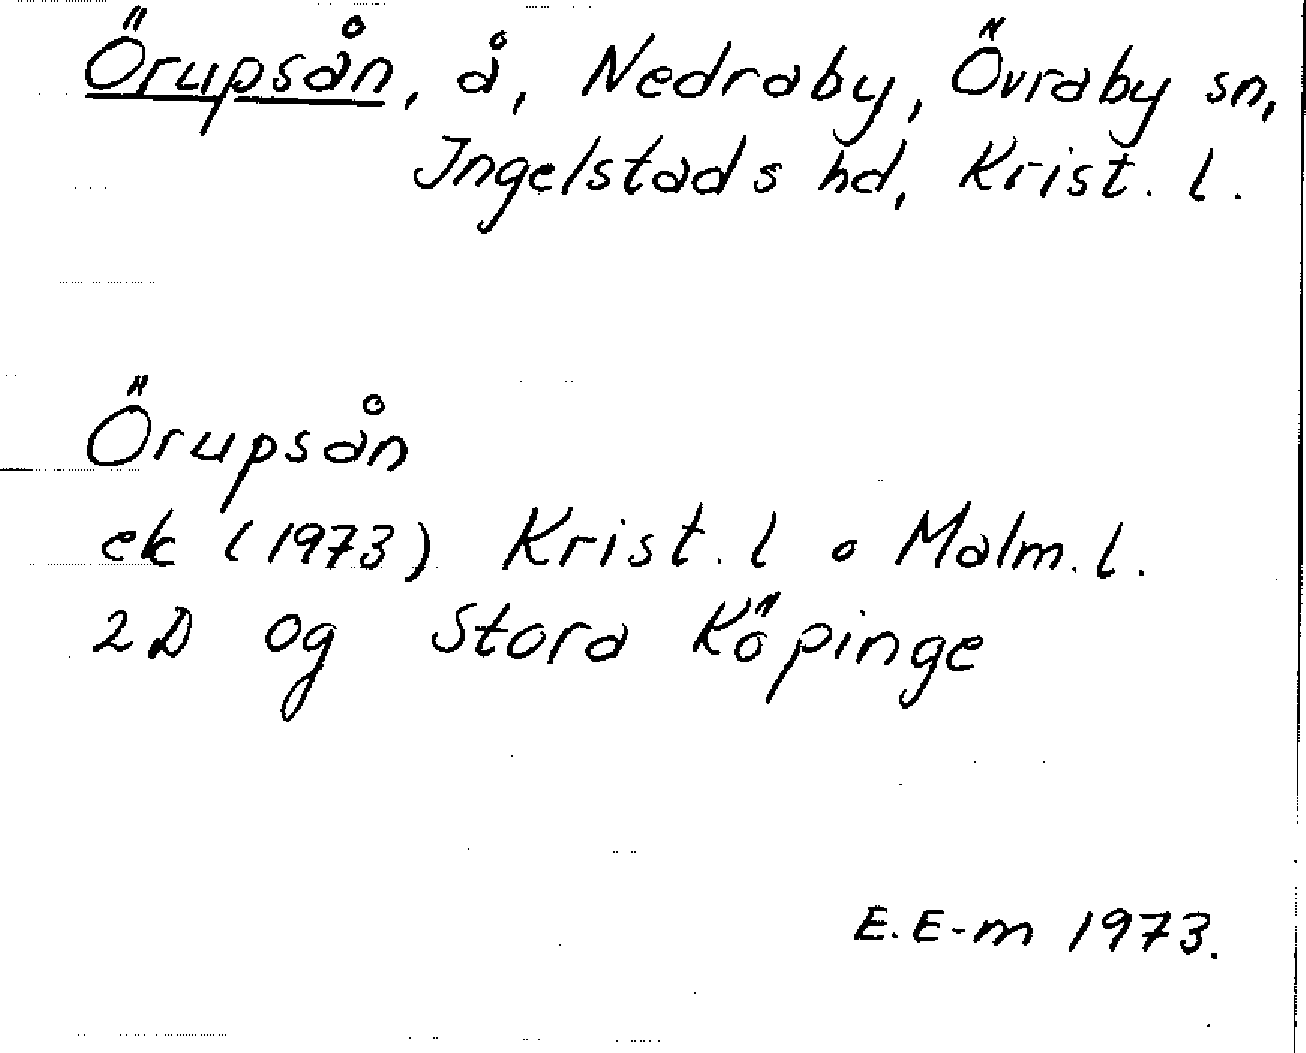 Örupsån, å, Nedraby, Övraby sn,
Ingelstads hd, Krist. l.
Örupsån
ek (1973) Krist. l o Malm. l.
2D Og Stora Köpinge
E. E-m 1973.